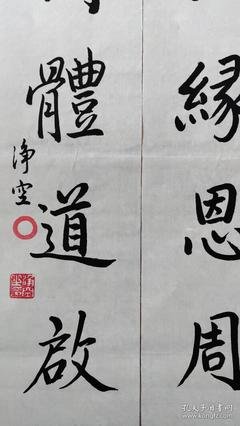 緣恩周
體道啟
净空
孔夫子旧书网